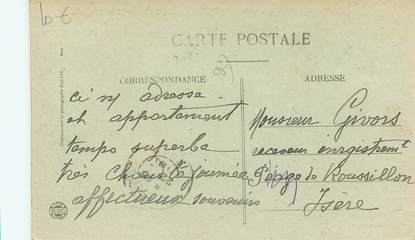 10 t
CARTE POSTALE
CORRESPONDANCE
ADRESSE
ci n/ adresse.
et appartement
temps superbe
très chaude journée
affectueux souvenirs
Monsieur Givors
receveur enregistremt
Péage de Roussillon
Isère